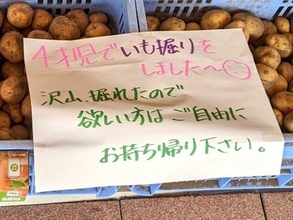 4才児でいも掘りを
しました〜
沢山、掘れたので
欲しい方はご自由に
お持ち帰り下さい。